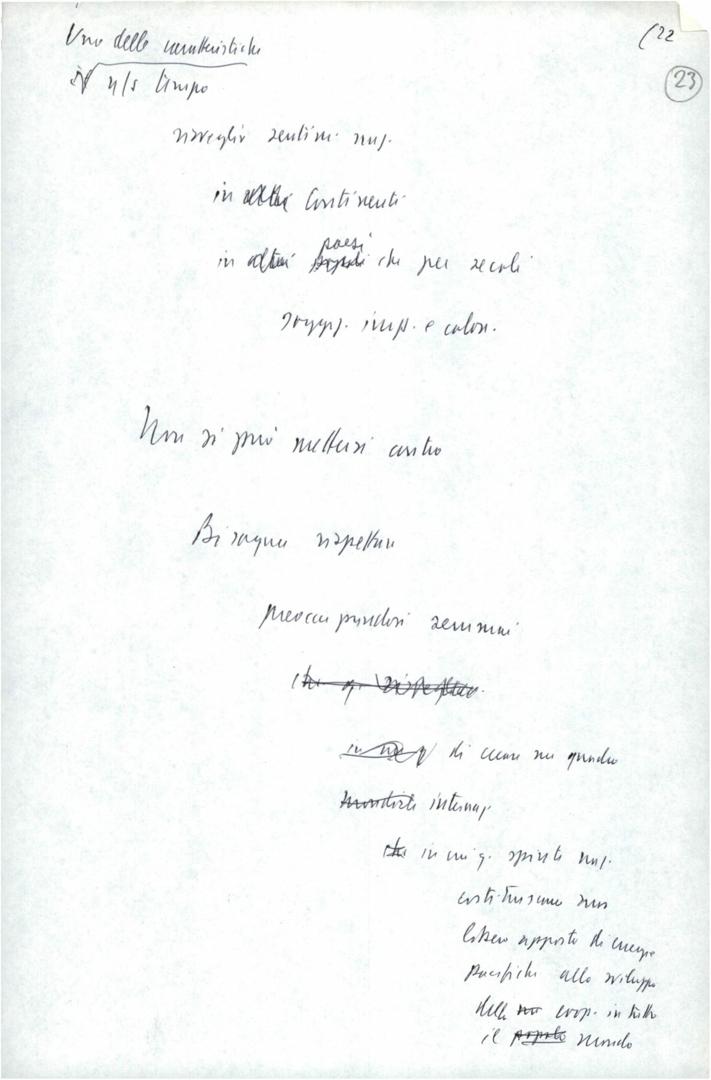 (22
23
Una delle caratteristiche
n/s tempo
risveglio sentim. naz.
in altri Continenti
in altri paesi che per secoli
sogg. imp. e colon.
Non si può mettersi contro
Bisogna rispettare
preoccupandosi semmai
che q. risveglio
di creare un quadro
mondiale internaz
che in cui q. spinte naz.
costituiscano un
libero apporto di energie
pacifiche allo sviluppo
della coop. in tutto
il popolo mondo